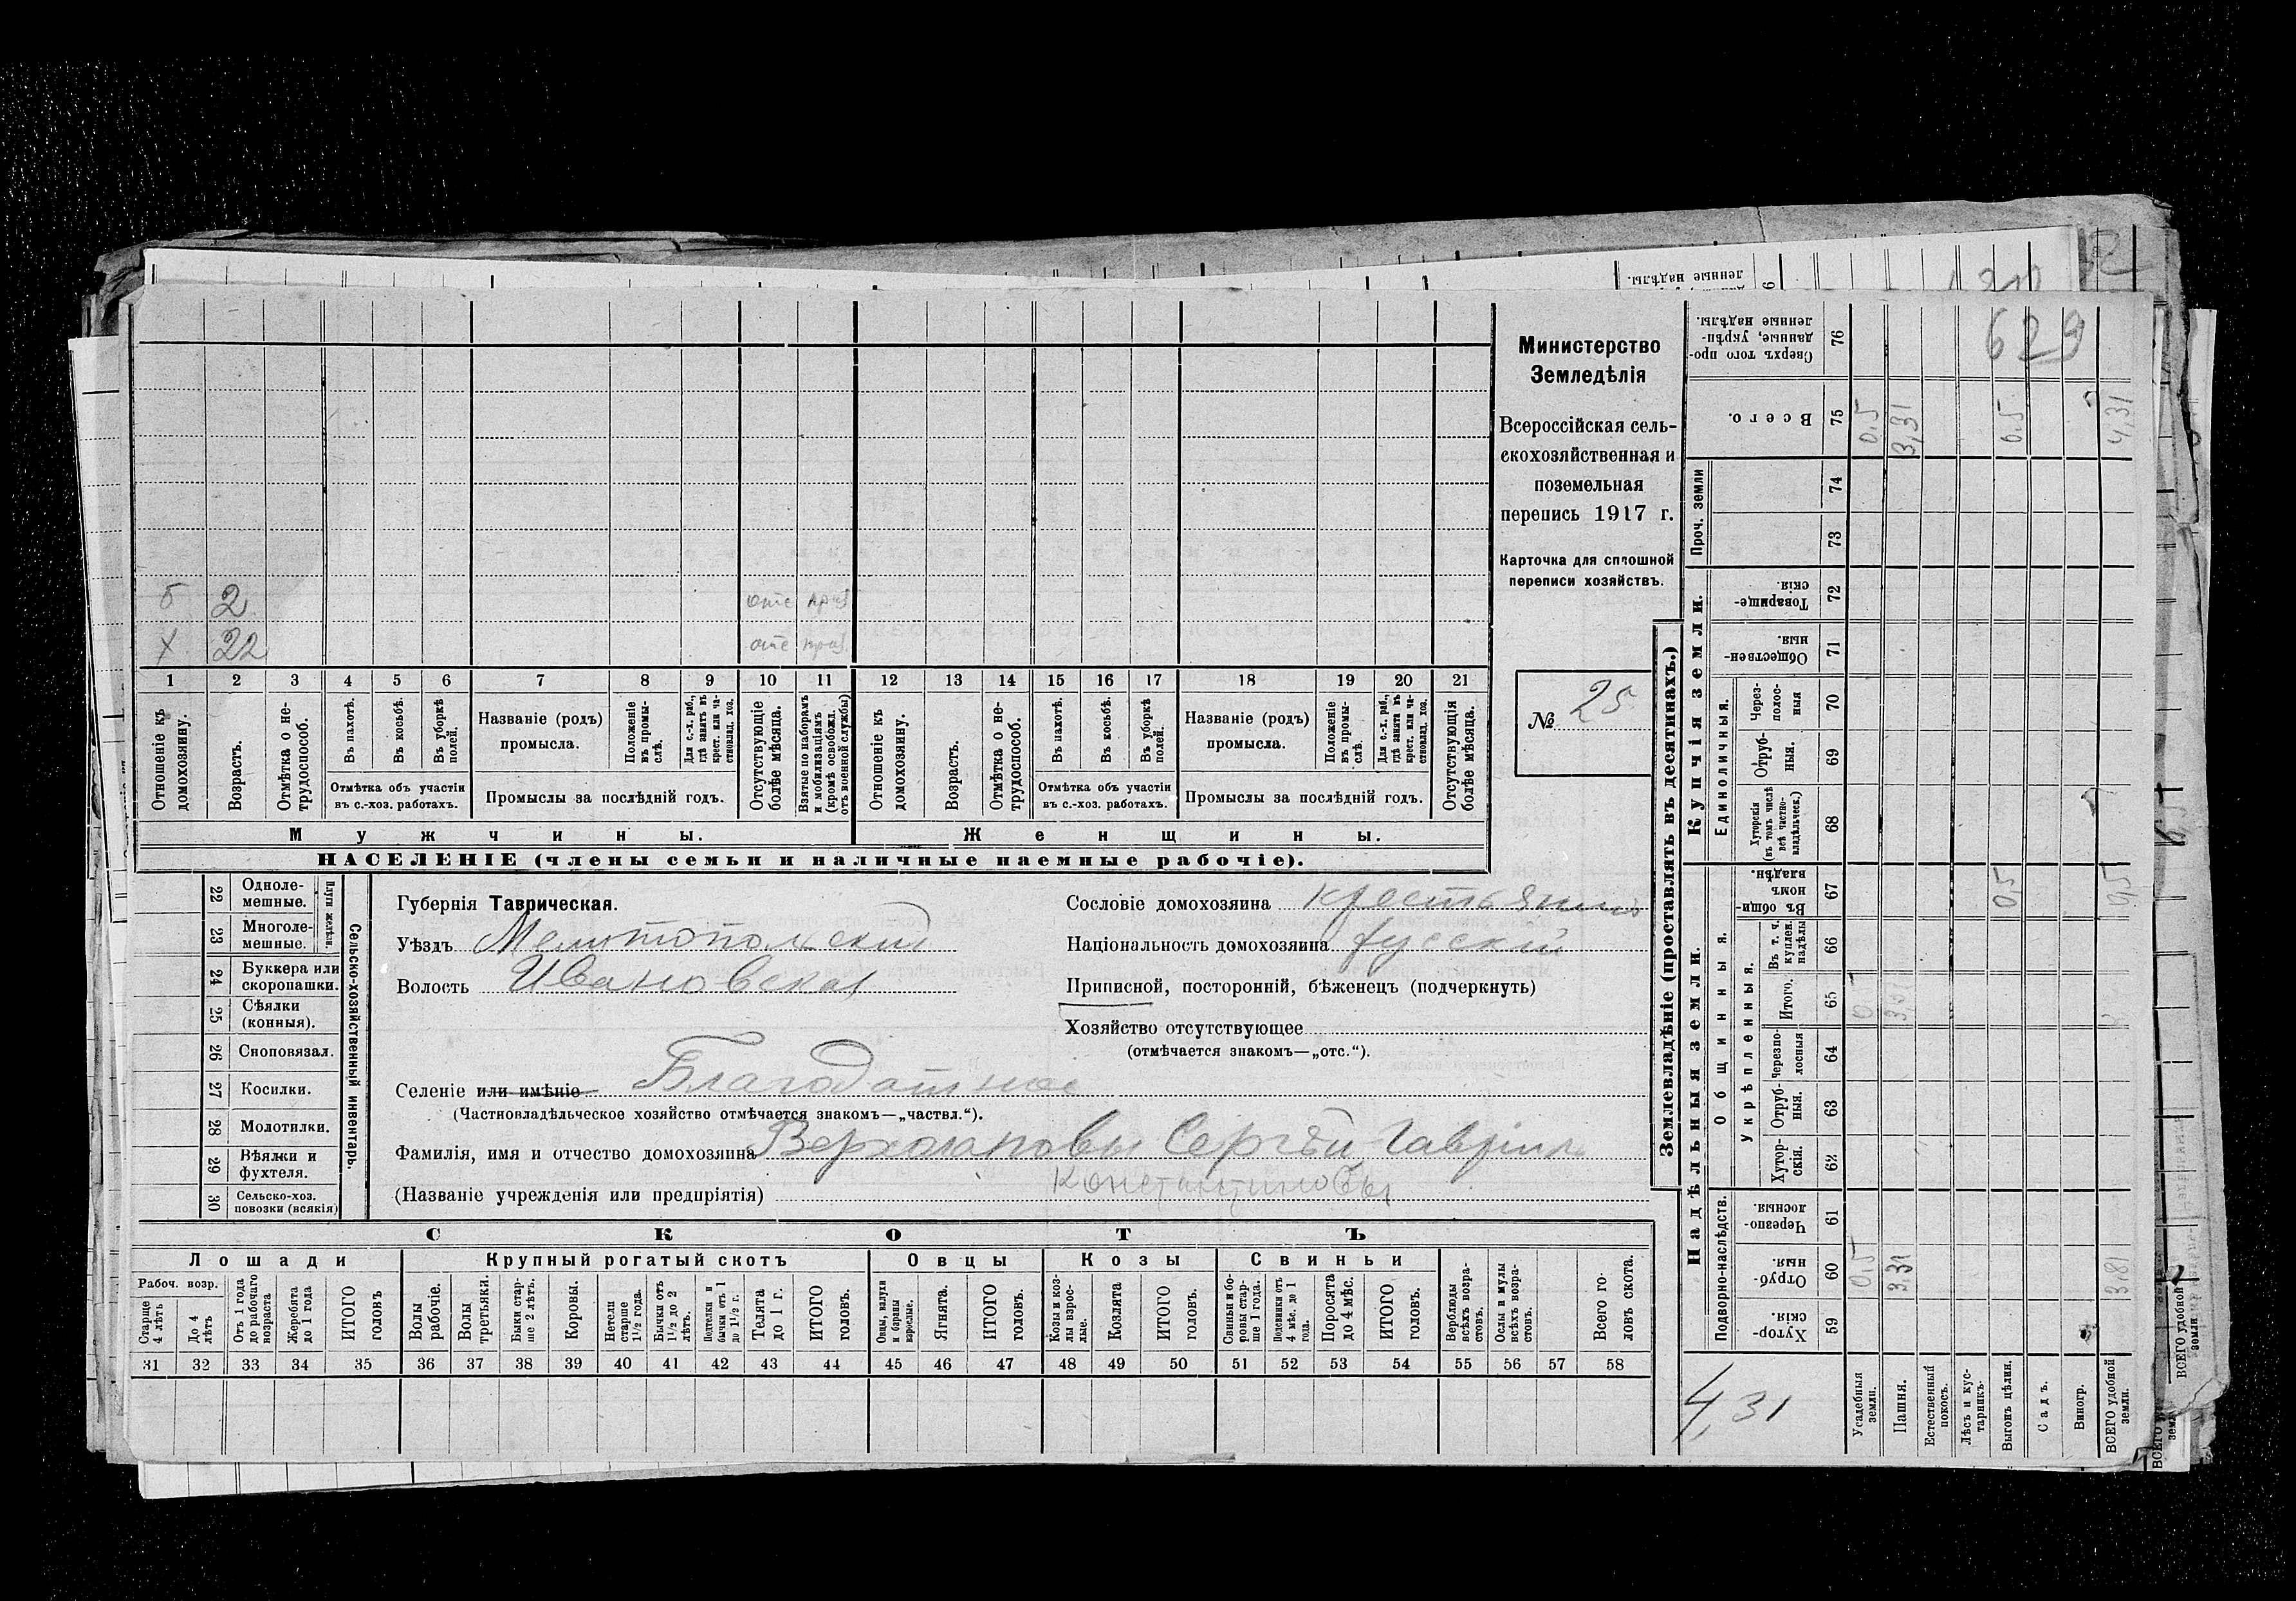 б 2 отс приз
х 22 отс приз
1 2 3 4 5 6 7 8 9 10 11 12 13 14 15 16 17 18 19 20 21
Отношеніе къ домохозяину.
Возрастъ.
Отмѣтка о нетрудоспособ.
Въ пахотѣ.
Въ косьбѣ.
Въ уборкѣ полей.
Отмѣтка объ участіи
въ с.-хоз. работахъ.
Названіе (родъ)
промысла.
Положеніе въ промыслѣ.
Для с.-х. раб., гдѣ занятъ въ крест. или частновлад. хоз.
Промыслы за послѣдній годъ.
Отсутствующіе болѣе мѣсяца.
Взятые по наборамъ и мобилизаціямъ (кромѣ освобожд. отъ военной службы)
Отношеніе къ домохозяину.
Возрастъ.
Отмѣтка о нетрудоспособ.
Въ пахотѣ.
Въ косьбѣ.
Въ уборкѣ полей.
Отмѣтка объ участіи
въ с.-хоз. работахъ.
Названіе (родъ)
промысла.
Положеніе въ промыслѣ.
Для с.-х. раб., гдѣ заняты въ крест. или частновлад. хоз.
Промыслы за послѣдній годъ.
Отсутствующія болѣе мѣсяца.
Мужчины. Женщины.
НАСЕЛЕНІЕ (члены семьи и наличные наемные рабочіе).
Министерство
Земледѣлія
Всероссійская сель-
скохозяйственная и
поземельная
перепись 1917 г.
Карточка для сплошной
переписи хозяйствъ.
№ 25
22 Одноле-
мешные.
23 Многоле-
мешные.
Плуги желѣзн.
24 Буккера или
скоропашки.
25 Сѣялки
(конныя).
26 Сноповязал.
27 Косилки.
28 Молотилки.
29 Вѣялки и
фухтеля.
30 Сельско-хоз.
повозки (всякія)
Сельско-хозяйственный инвентарь.
Губернія Таврическая.
Уѣздъ Мелитопольский
Волость Ивановская
Сословіе домохозяина крестьянинъ
Національность домохозяина русскій
Приписной, посторонній, бѣженецъ (подчеркнуть)
Хозяйство отсутствующее
(отмѣчается знакомъ—„отс.“).
Селеніе или имѣніе Благодатное
(Частновладѣльческое хозяйство отмѣчается знакомъ—„частвл.“).
Фамилія, имя и отчество домохозяина Сергѣй
(Названіе учрежденія или предпріятія) Константиновы
СКОТЪ
Лошади Крупный рогатый скотъ Овцы Козы Свиньи
Рабоч. возр.
Старше 4 лѣтъ
До 4 лѣтъ
Отъ 1 года до рабочаго возраста
Жеребята до 1 года
ИТОГО головъ
Волы рабочіе.
Волы третьяки.
Быки старше 2 лѣтъ.
Коровы.
Нетели старше 1½ года.
Бычки отъ 1½ до 2 лѣтъ.
Подтелки и бычки отъ 1 до 1½ г.
Телята до 1 г.
ИТОГО головъ.
Овцы, валухи и бараны взрослые.
Ягнята.
ИТОГО головъ.
Козы и козлы взрослые.
Козлята
ИТОГО головъ.
Свиньи и боровы старше 1 года.
Подсвинки отъ 4 мѣс. до 1 года.
Поросята до 4 мѣс.
ИТОГО головъ.
Верблюды всѣхъ возрастовъ.
Ослы и мулы всѣхъ возрастовъ.
Всего головъ скота.
31 32 33 34 35 36 37 38 39 40 41 42 43 44 45 46 47 48 49 50 51 52 53 54 55 56 57 58
Землевладѣніе (проставлять въ десятинахъ.)
Надѣльныя земли. Купчія земли. Проч. земли
Подворно-наслѣдств.
Общинныя.
Укрѣпленныя.
Единоличныя.
Сверхъ того проданные, укрѣпленные надѣлы. 76
Всего. 75 0,5 3,31 0,5 4,31
74
73
Товарищескія. 72
Общественныя. 71
Черезполосныя 70
Отрубныя. 69
Хуторскія (въ томъ числѣ всѣ частновладѣльческ.) 68
Въ общиномъ владѣн. 67 0,5 0,5
Въ т. ч. куплен. надѣлы 66
Итого. 65
Черезполосныя 64
Отрубныя. 63
Хуторскія. 62
Черезполосныя. 61
Отрубныя. 60 0,5 3,31 3,81
Хуторскія. 59
4,31
Усадебныя земли.
Пашня.
Естественный покосъ.
Лѣсъ и кустарникъ.
Выгонъ цѣлин.
Садъ.
Виногр.
ВСЕГО удобной земли.
629
ленные надѣлы.
ВСЕГО удобной земли.